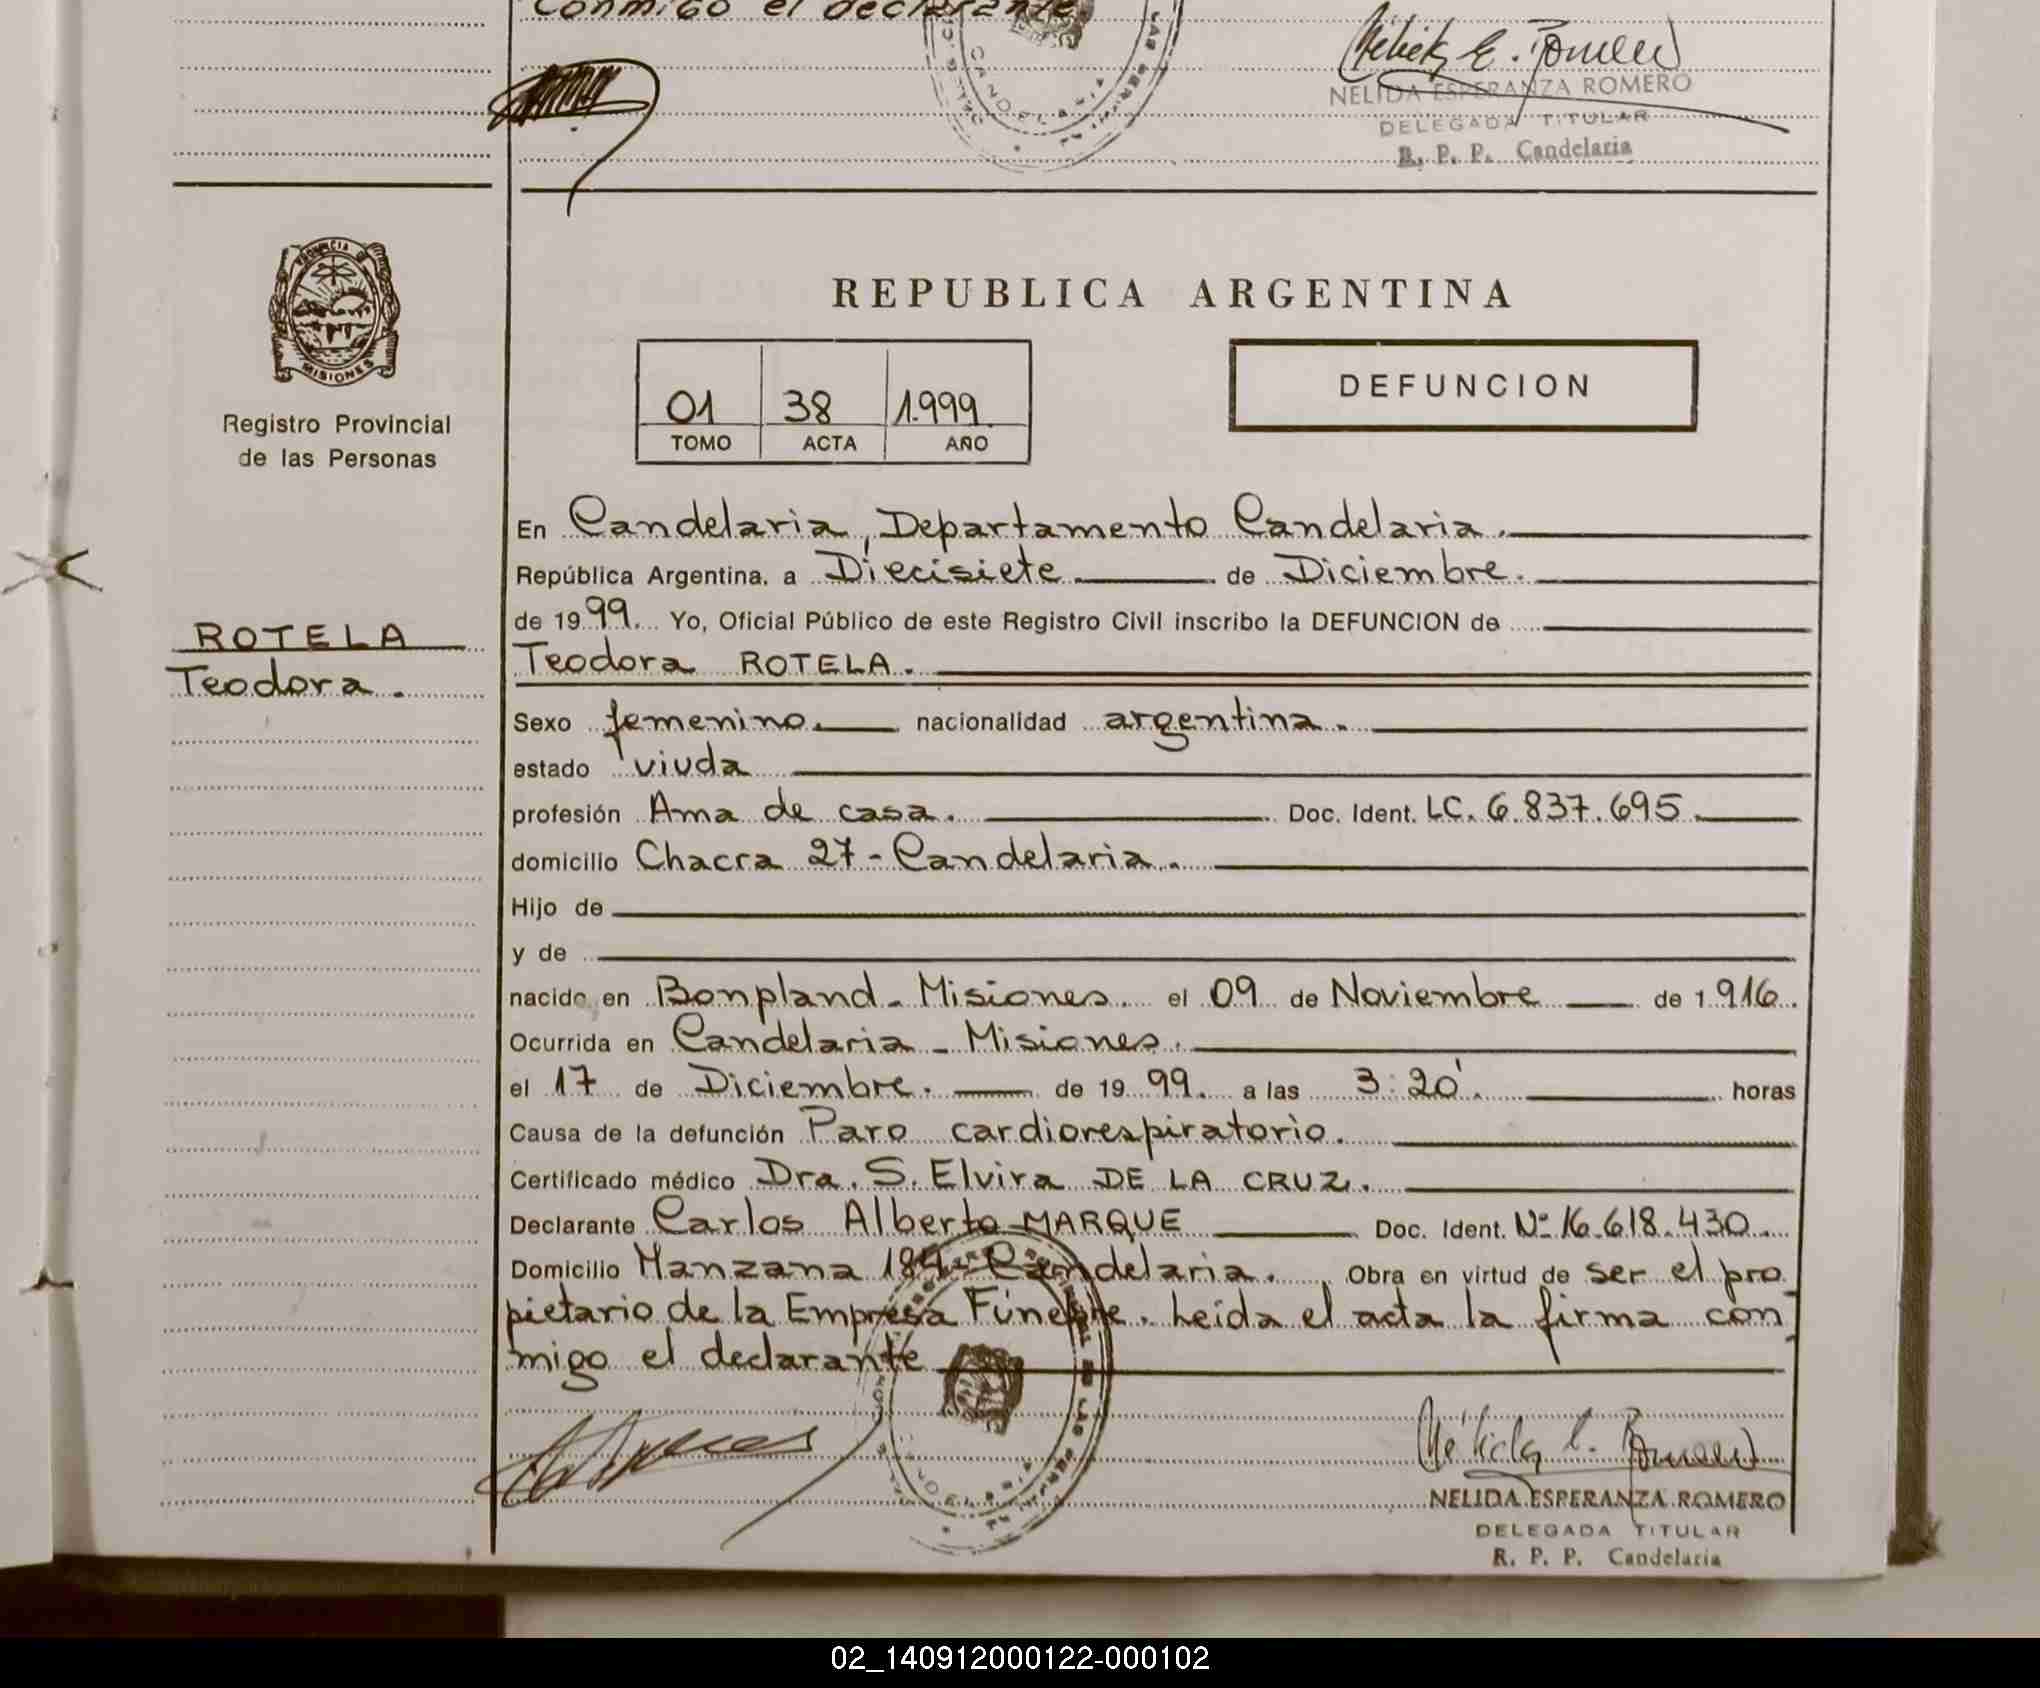 Conmigo el declarante.
NELIDA ESPERANZA ROMERO
DELEGADA TITULAR
R. P. P. Candelaria
PROVINCIA DE
MISIONES
Registro Provincial
de las Personas
REPUBLICA ARGENTINA
01 38 1.999
TOMO ACTA AÑO
DEFUNCION
En Candelaria, Departamento Candelaria.
República Argentina, a Diecisiete de Diciembre.
de 1999. Yo, Oficial Público de este Registro Civil inscribo la DEFUNCION de
ROTELA
Teodora.
Teodora ROTELA.
Sexo femenino. nacionalidad argentina.
estado viuda
profesión Ama de casa. Doc. Ident. LC. 6.837.695.
domicilio Chacra 27 - Candelaria.
Hijo de
y de
nacido en Bonpland - Misiones. el 09 de Noviembre de 1.916.
Ocurrida en Candelaria - Misiones.
el 17 de Diciembre. de 1999. a las 3:20'. horas
Causa de la defunción Paro cardiorespiratorio.
Certificado médico Dra. S. Elvira DE LA CRUZ.
Declarante Carlos Alberto MARQUE Doc. Ident. Nº 16.618.430.
Domicilio Manzana Candelaria. Obra en virtud de ser el pro
pietario de la Empresa Fúnebre. Leída el acta la firma con
migo el declarante
NELIDA ESPERANZA ROMERO
DELEGADA TITULAR
R. P. P. Candelaria
02_140912000122-000102